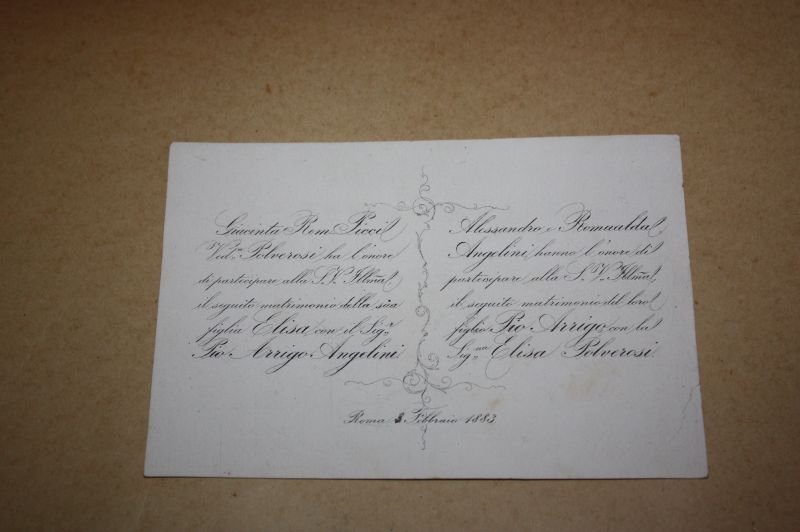 Giacinta Rem Picci
Ved.va Polverosi ha l'onore
di partecipare alla S. V. Illma,
il seguito matrimonio della sua
figlia Elisa con il Sig.r
Pio Arrigo Angelini
Alessandro e Romualda
Angelini hanno l'onore di
partecipare alla S. V. Illma,
il seguito matrimonio del loro
figlio Pio Arrigo con la
Sig.na Elisa Polverosi.
Roma Febbraio 1883